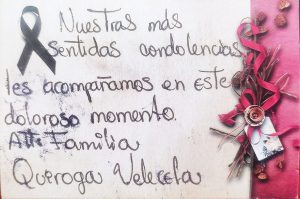 Nuestras más
sentidas condolencias
les acompañamos en este
doloroso momento.
Att: Familia
Queroga Velecela